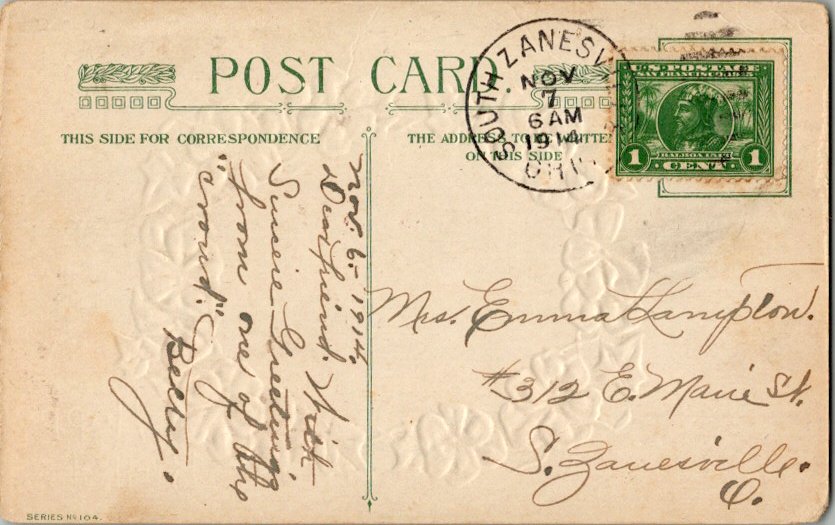 POST CARD.
THIS SIDE FOR CORRESPONDENCE
THE ADDRESS TO BE WRITTEN
ON THIS SIDE
SOUTH ZANESV
NOV
7
6 AM
1914
OHIO
SAN FRANCISCO
1 CENT 1
Nov. 6 - 1914.
Dear friend. With
Sincere Greetings,
"from one of the
crowd."
Betty.
Mrs. Emma Hampton.
#312 E. Marie St.
S. Zanesville.
O.
SERIES No 104.